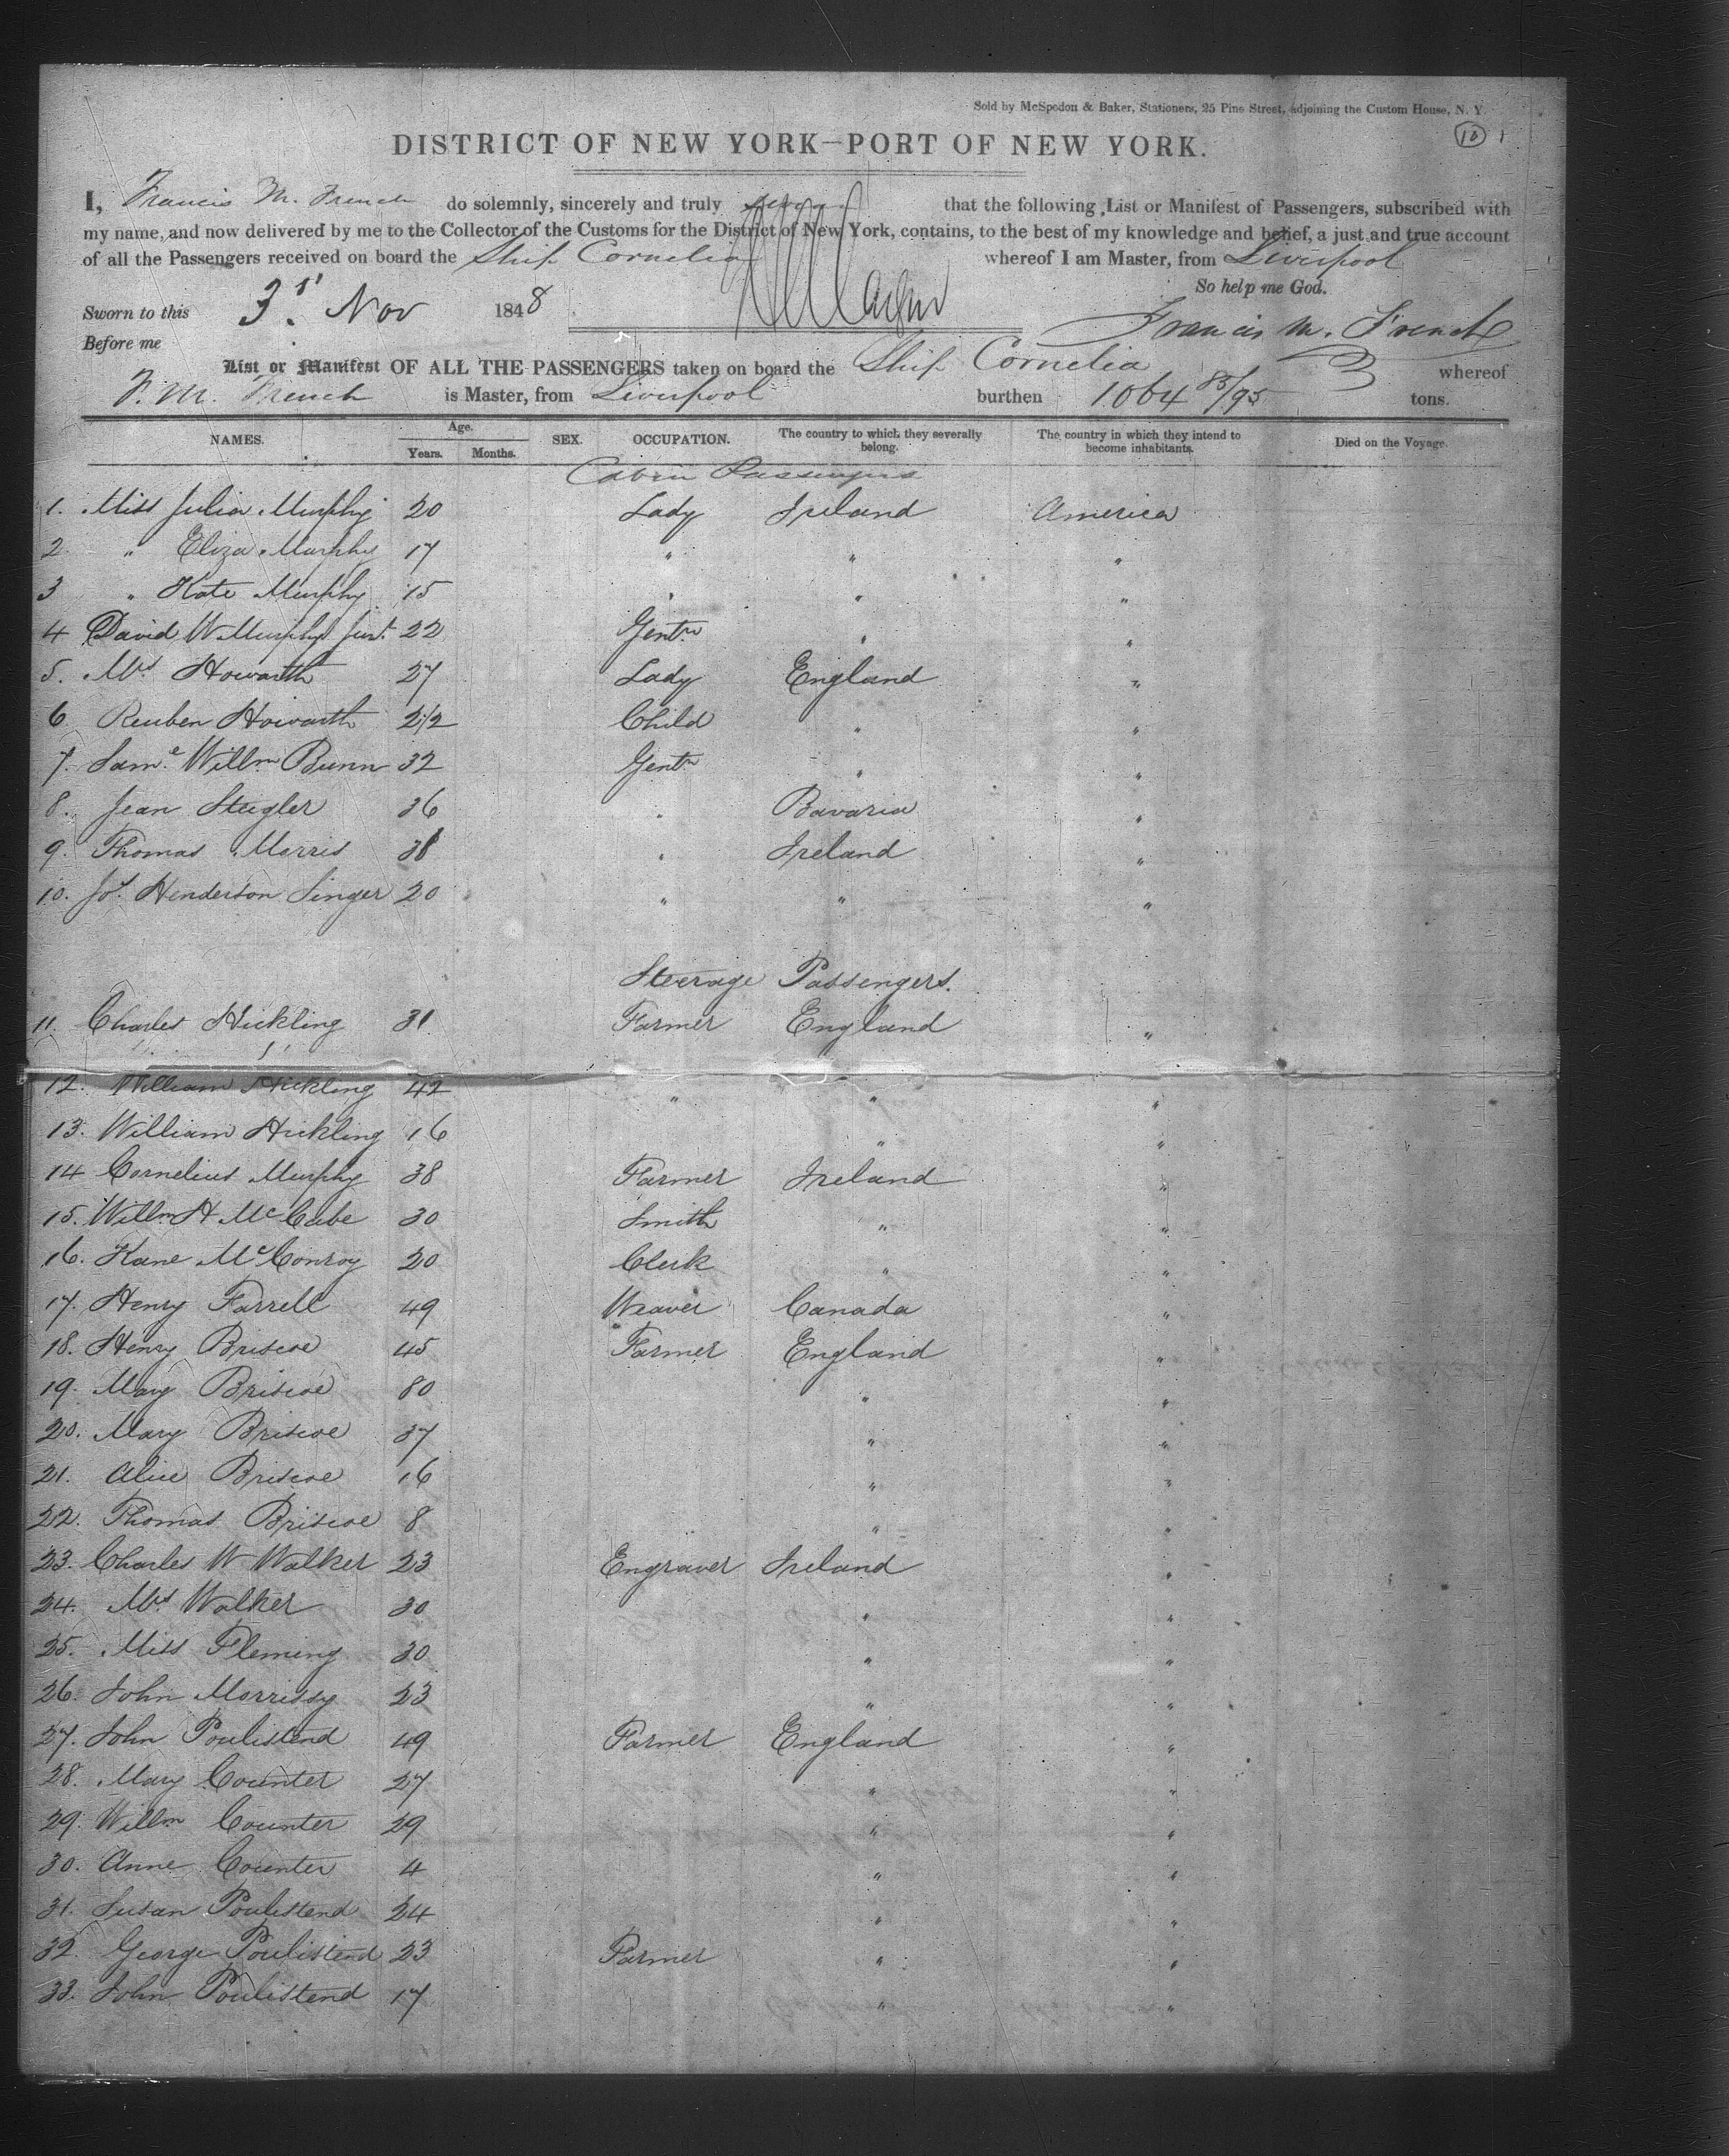 Sold by McSpedon & Baker, Stationers, 25 Pine Street, adjoining the Custom House, N. Y.
10
DISTRICT OF NEW YORK—PORT OF NEW YORK.
I, Francis M. French do solemnly, sincerely and truly swear that the following List or Manifest of Passengers, subscribed with
my name, and now delivered by me to the Collector of the Customs for the District of New York, contains, to the best of my knowledge and belief, a just and true account
of all the Passengers received on board the Ship Cornelia whereof I am Master, from Liverpool
So help me God.
Sworn to this 3 Nov 1848
Francis M. French
Before me
List or Manifest OF ALL THE PASSENGERS taken on board the Ship Cornelia whereof
F. M. French is Master, from Liverpool burthen 1064 85/95 tons.
NAMES. Age. Years. Months. SEX. OCCUPATION. The country to which they severally belong. The country in which they intend to become inhabitants. Died on the Voyage.
Cabin Passengers
1. Miss Julia Murphy 20 Lady Ireland America
2 " Eliza Murphy 17 " " "
3 " Kate Murphy 15 " " "
4 David W Murphy Junr. 22 Gentn " "
5. Mrs Howarth 27 Lady England "
6 Reuben Howarth 2 1/2 Child " "
7. Saml Willm Bunn 32 Gentn " "
8. Jean Steigler 36 " Bavaria "
9. Thomas Morris 38 " Ireland "
10. Jos. Henderson Singer 20 " " "
Steerage Passengers.
11. Charles Hickling 31 Farmer England "
12. William Hickling 42 " " "
13. William Hickling 16 " "
14 Cornelius Murphy 38 Farmer Ireland "
15. Willm H McCabe 30 Smith " "
16. Kane McConroy 20 Clerk " "
17. Henry Farrell 49 Weaver Canada "
18. Henry Briscoe 45 Farmer England "
19. Mary Briscoe 80 " "
20. Mary Briscoe 37 " "
21. Alice Briscoe 16 " "
22. Thomas Briscoe 8 " "
23. Charles W Walker 23 Engraver Ireland "
24. Mrs Walker 30 " "
25. Miss Fleming 30 " "
26. John Morrissy 23 " "
27. John Poulistend 49 Farmer England "
28. Mary Counter 27 " "
29. Willm Counter 29 " "
30. Anne Counter 4 " "
31. Susan Poulistend 24 " "
32. George Poulistend 23 Farmer " "
33. John Poulistend 17 " "